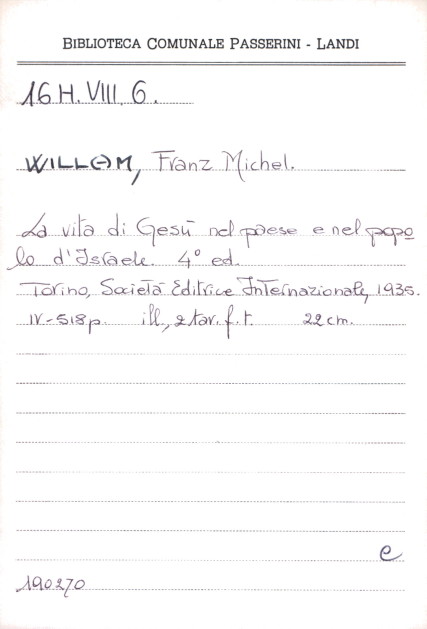 BIBLIOTECA COMUNALE PASSERINI - LANDI
16 H. VIII. 6.
WILLAM, Franz Michel.
La vita di Gesù nel paese e nel popo
lo d'Israele. 4° ed.
Torino, Società Editrice Internazionale, 1935.
IV-518 p. ill., 2 tav. f. t. 22 cm.
e
190270